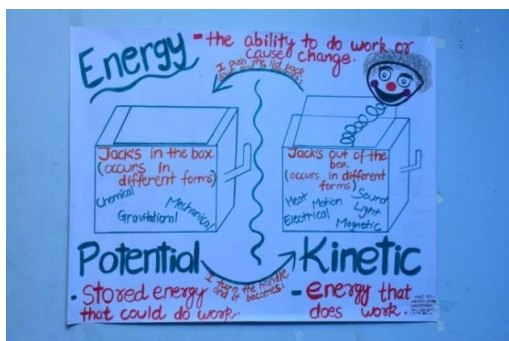 Energy - the ability to do work or
cause change.
I push the lid back
Jack's in the box.
(occurs in
different forms)
Chemical
Mechanical
Gravitational
Jack's out of the
box.
(occurs in different
forms)
Heat
Motion
Sound
Light
Electrical
Magnetic
Potential
- Stored energy
that could do work.
I turn the handle
and it becomes:
Kinetic
- energy that
does work.